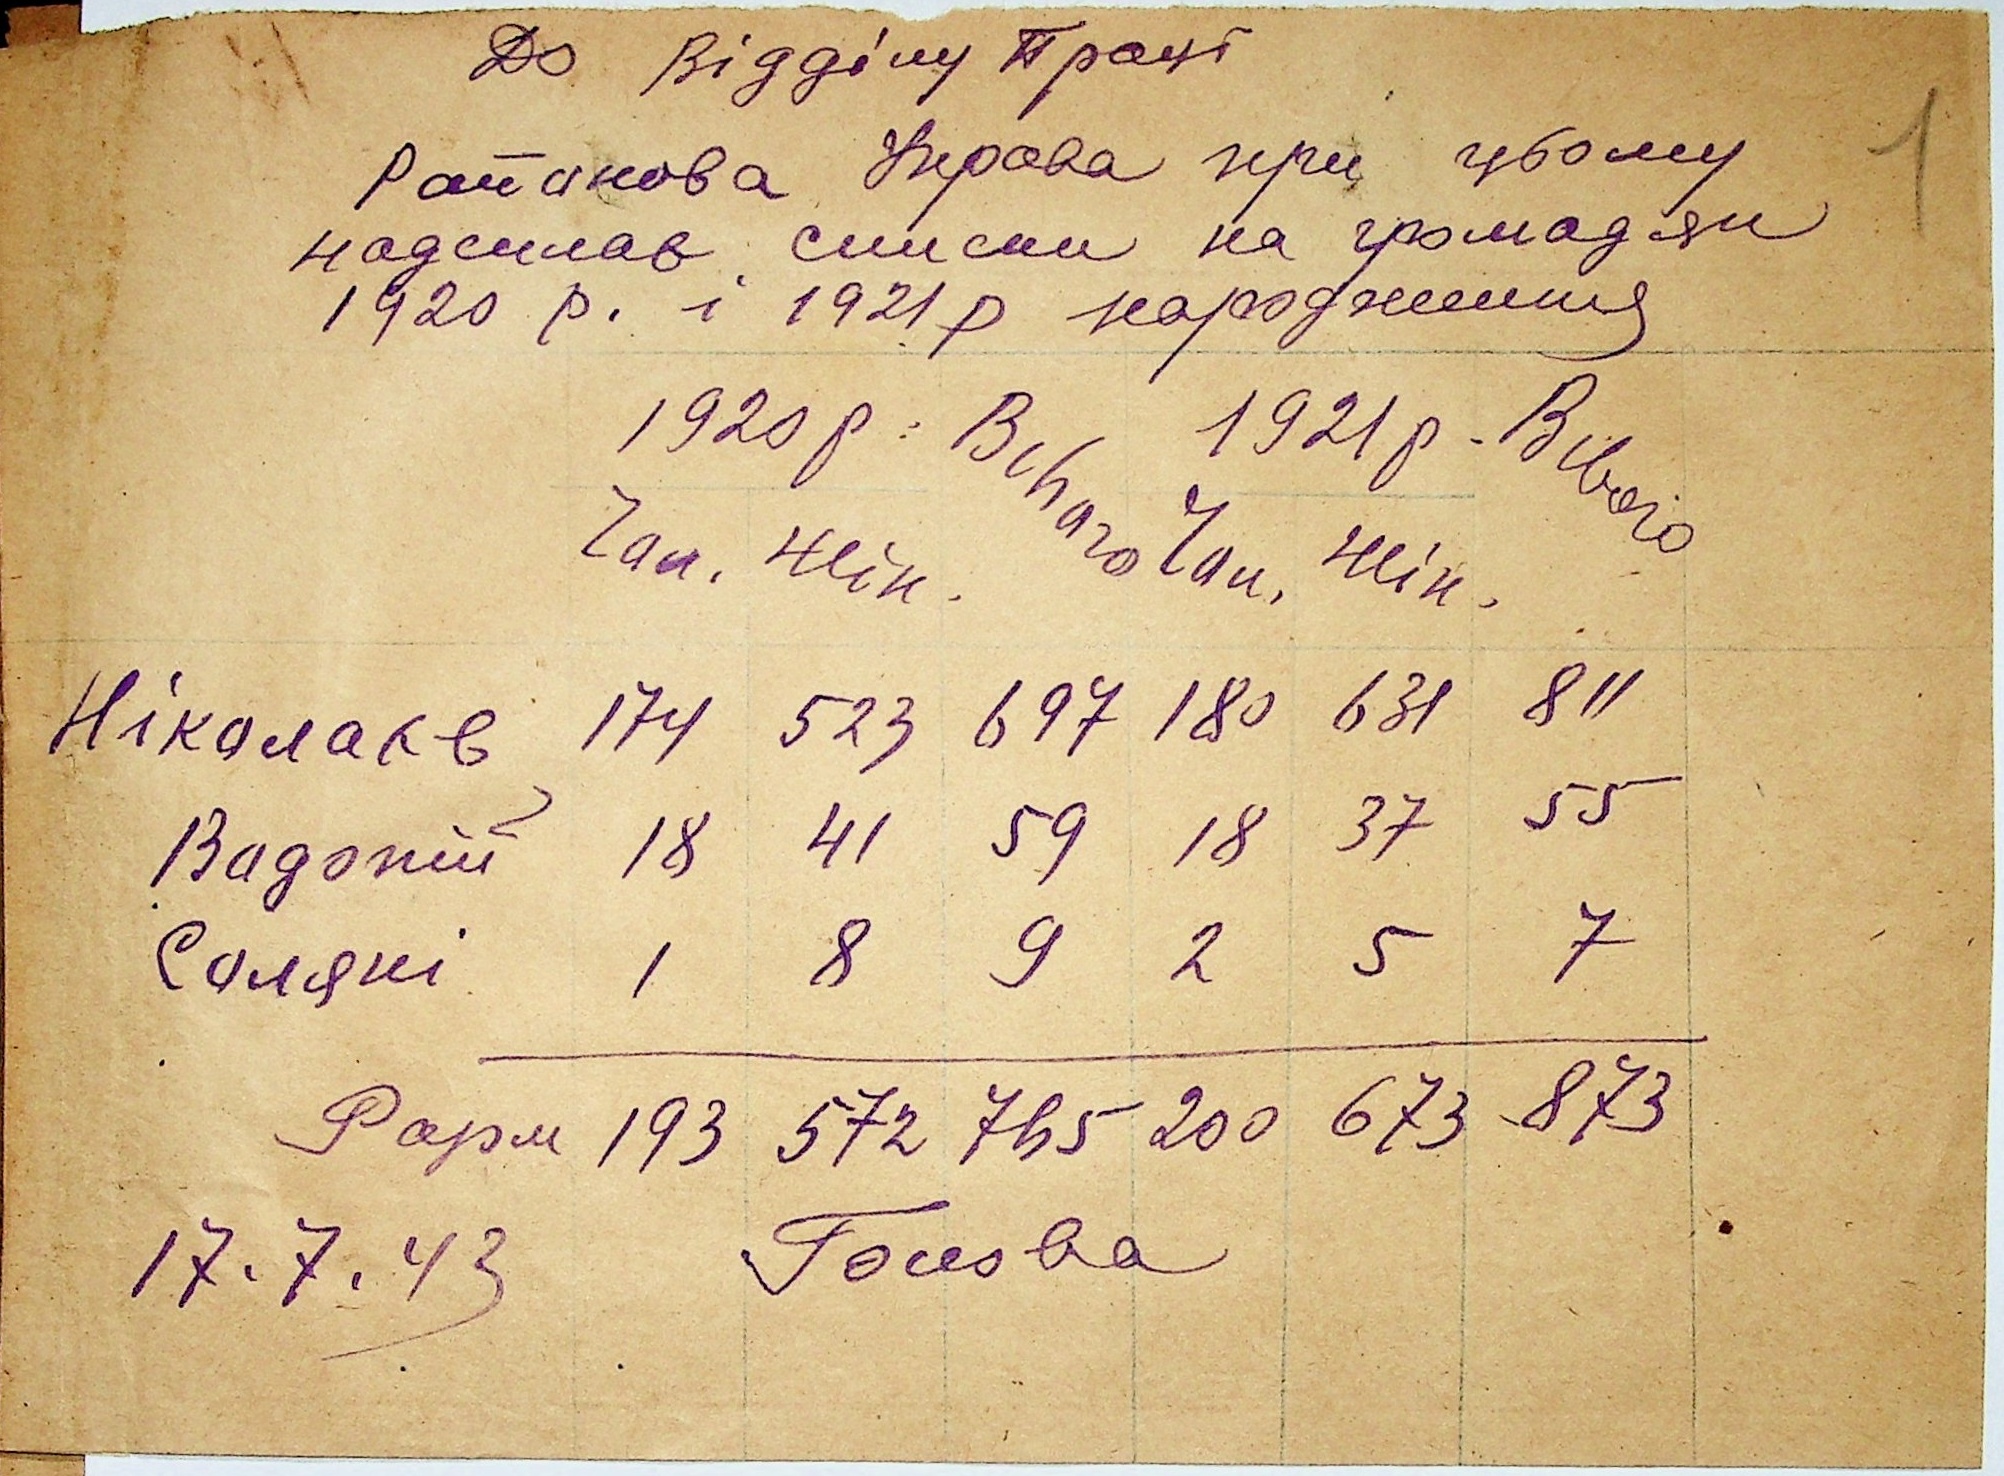 До Відділу Праці
1
Районова Управа при цьому
надсилає списки на громадян
1920 р. і 1921 р народження
1920 р. Всього 1921 р. Всього
Чол. Жін. Чол. Жін.
Ніколаєв 174 523 697 180 631 811
Вадопій 18 41 59 18 37 55
Соляні 1 8 9 2 5 7
193 572 765 200 673 873
17.7.43 Голова